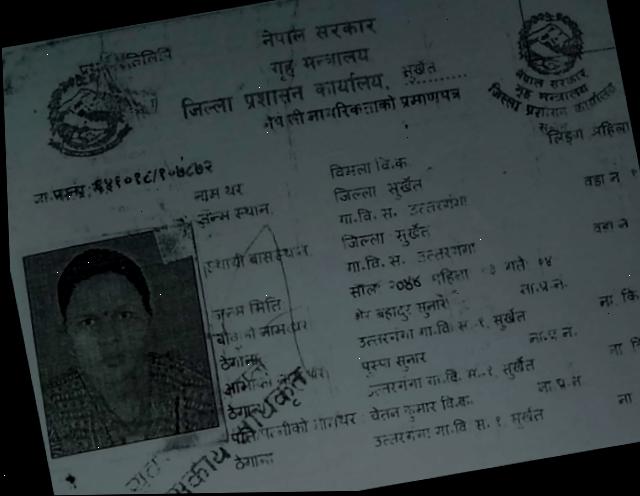 नेपाल सरकार
गृह मन्त्रालय
जिल्ला प्रशासन कार्यालय, सुर्खेत
नेपाली नागरिकताको प्रमाणपत्र
नेपाल सरकार
गृह मन्त्रालय
जिल्ला प्रशासन कार्यालय
लिङ्ग महिला
नाम थर विमला वि.क.
जन्म स्थान जिल्ला सुर्खेत
गा.वि.स. उत्तरगंगा वडा नं
स्थायी बासस्थान जिल्ला सुर्खेत
गा.वि.स. उत्तरगंगा वडा नं
जन्म मिति साल २०४४ महिना गते १४
बाबुको नाम थर बहादुर सुनार ना.प्र.नं.
ठेगाना उत्तरगंगा गा.वि.स.-१, सुर्खेत ना. कि
आमाको थर पुस्पा सुनार ना.प्र.नं.
ठेगाना उत्तरगंगा गा.वि.स.-१, सुर्खेत
पति/पत्नीको नामथर चेतन कुमार वि.क. ना.प्र.नं.
ठेगाना उत्तरगंगा गा.वि.स.१, सुर्खेत ना